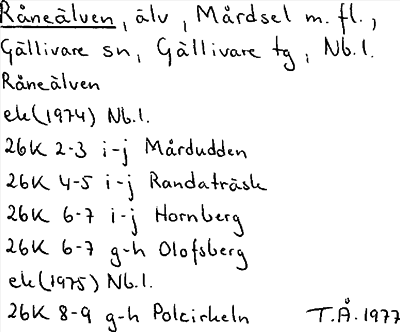 Råneälven, älv, Mårdsel m. fl.,
Gällivare sn, Gällivare tg, Nb. l.
Råneälven
ek (1974) Nb. l.
26K 2-3 i-j Mårdudden
26K 4-5 i-j Randaträsk
26K 6-7 i-j Hornberg
26K 6-7 g-h Olofsberg
ek (1975) Nb. l.
26K 8-9 g-h Polcirkeln T.Å. 1977